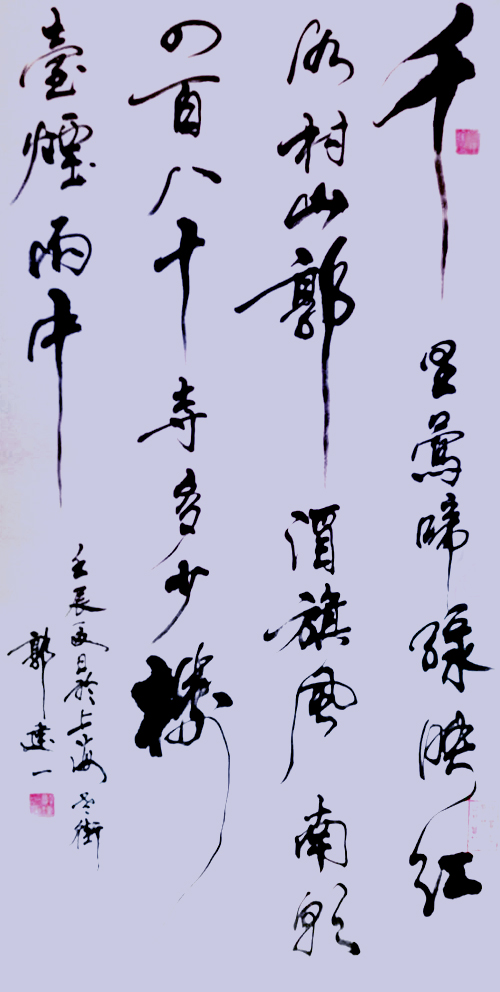 千里鶯啼綠映紅
水村山郭酒旗風南朝
四百八十寺多少樓
臺煙雨中
壬辰夏日於上海老街
郭建一